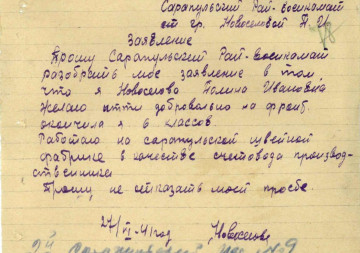 Сарапульский Рай-военкомат
от гр. Новоселовой П. И.
Заявление
Прошу Сарапульский Рай-военкомат
разобрать мое заявление в том,
что я Новоселова Полина Ивановна
желаю итти добровольно на фронт.
окончила я 6 классов
Работаю на сарапульской цветной
фабрике в качестве счетовода производ-
ственника
Прошу не отказать моей просьбе.
27/VI-41 год Новоселова